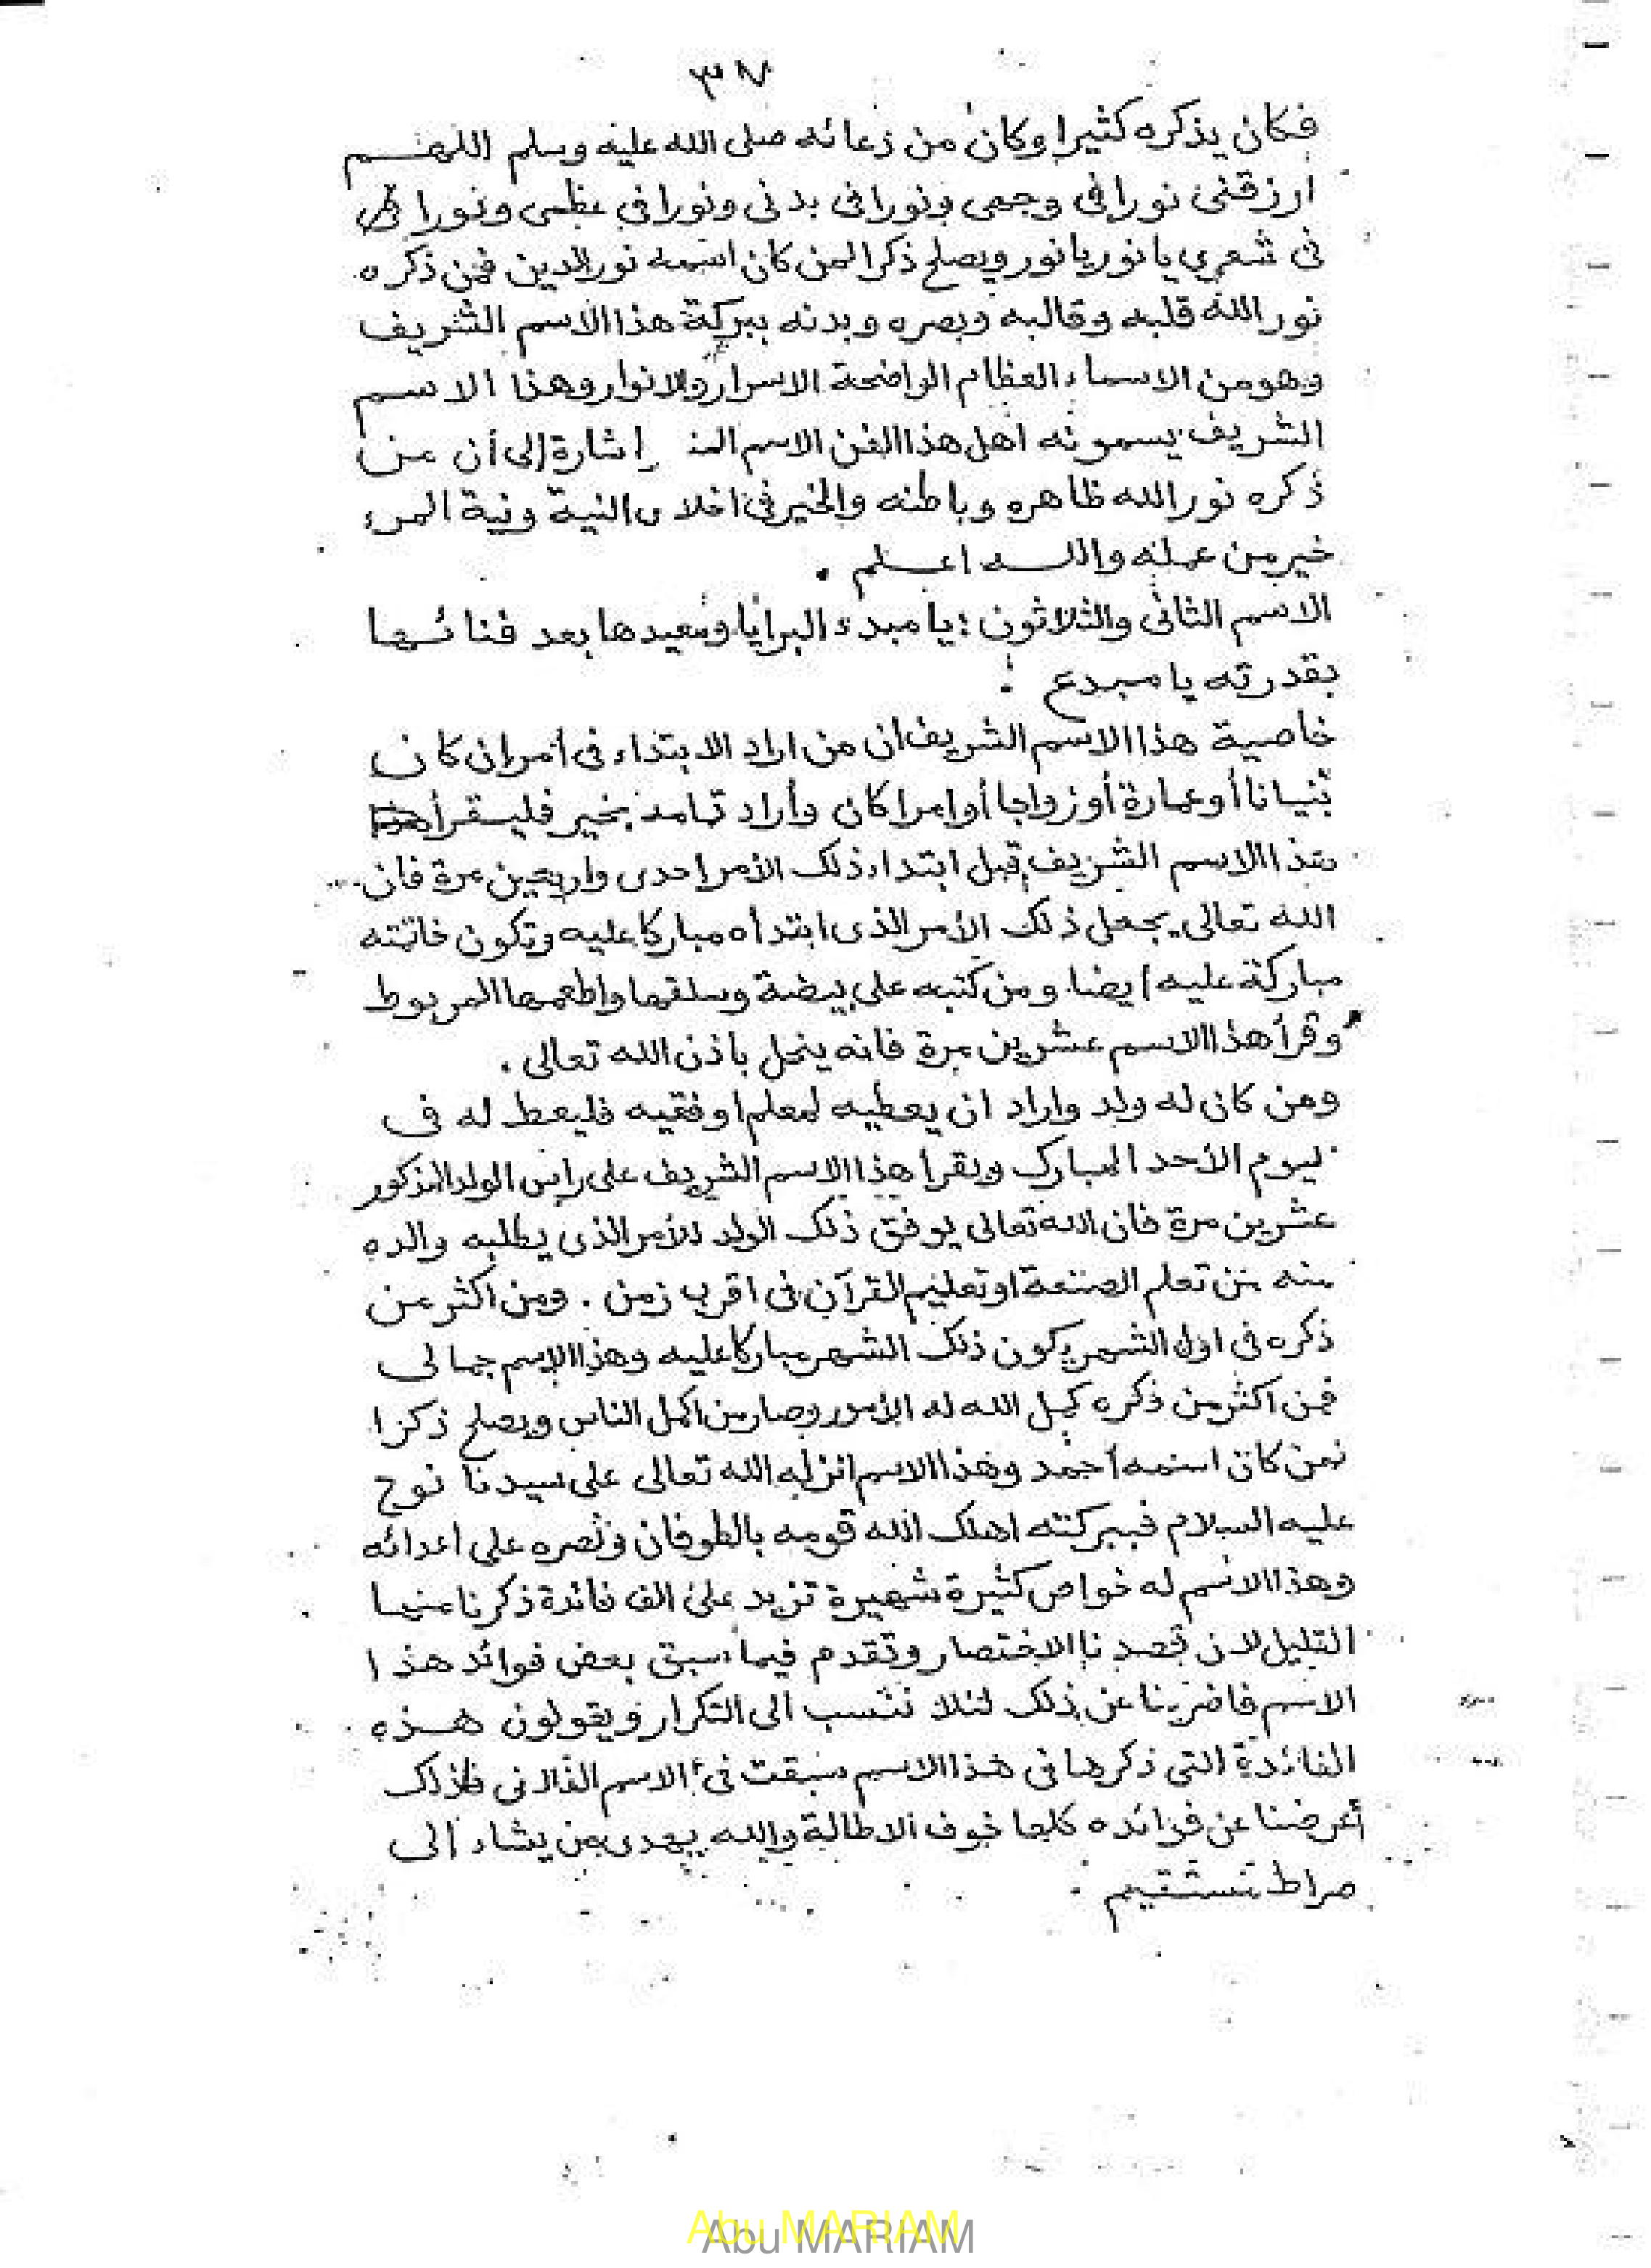 ٣٧
فكان يذكره كثيرا وكان من دعائه صلى الله عليه وسلم اللهم
ارزقنى نورا فى وجهى ونورا فى بدنى ونورا فى عظمى ونورا
فى شعرى يا نور يا نور ويصلح ذكرا لمن كان اسمه نور الدين فمن ذكره
نور الله قلبه وقالبه وبصره وبدنه ببركة هذا الاسم الشريف
وهو من الاسماء العظام الواضحة الاسرار والانوار وهذا الاسم
الشريف يسمونه اهل هذا الفن الاسم إشارة إلى أن من
ذكره نور الله ظاهره وباطنه والخير فى النية ونية المرء
خير من عمله والله اعلم .
الاسم الثانى والثلاثون : يا مبدء البرايا ومعيدها بعد فنائها
بقدرته يا مبدع :
خاصية هذا الاسم الشريف ان من اراد الابتداء فى أمر ان كان
بنيانا أو عمارة أو زواجا أو امرا كان وأراد تمامه بخير فليقرأ
هذا الاسم الشريف قبل ابتداء ذلك الأمر إحدى واربعين مرة فان
الله تعالى يجعل ذلك الأمر الذى ابتدأه مباركا عليه وتكون خاتمته
مباركة عليه ايضا . ومن كتبه على بيضة وسلقها واطعمها المربوط
وقرأ هذا الاسم عشرين مرة فانه ينحل باذن الله تعالى .
ومن كان له ولد واراد ان يعطيه لمعلم او فقيه فليعط له فى
ليوم الأحد المبارك ويقرأ هذا الاسم الشريف على راس الولد المذكور
عشرين مرة فان الله تعالى يوفق ذلك الولد للأمر الذى يطلبه والده
منه من تعلم الصنعة او تعليم القرآن فى اقرب زمن . ومن اكثر من
ذكره فى اول الشهر يكون ذلك الشهر مباركا عليه وهذا الاسم جمالى
فمن اكثر من ذكره كمل الله له الأمور وصار من اكمل الناس ويصلح ذكرا
لمن كان اسمه أحمد وهذا الاسم انزله الله تعالى على سيدنا نوح
عليه السلام فببركته اهلك الله قومه بالطوفان ونصره على اعدائه
وهذا الاسم له خواص كثيرة شهيرة تزيد على الف فائدة ذكرنا منها
القليل لان قصدنا الاختصار وتقدم فيما سبق بعض فوائد هذا
الاسم فاضربنا عن ذلك لئلا ننسب الى التكرار ويقولون هذه
الفائدة التى ذكرها فى هذا الاسم سبقت فى الاسم الفلانى فلذلك
أعرضنا عن فوائده كلها خوف الاطالة والله يهدى من يشاء إلى
صراط مستقيم .
Abu MARIAM